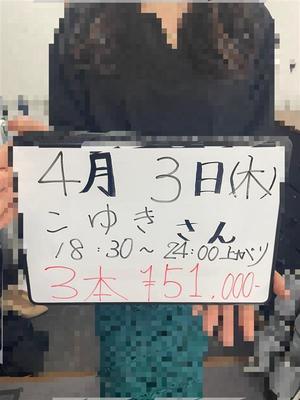 4月 3日(木)
こゆき さん
18:30～24:00上がり
3本 ¥51,000-